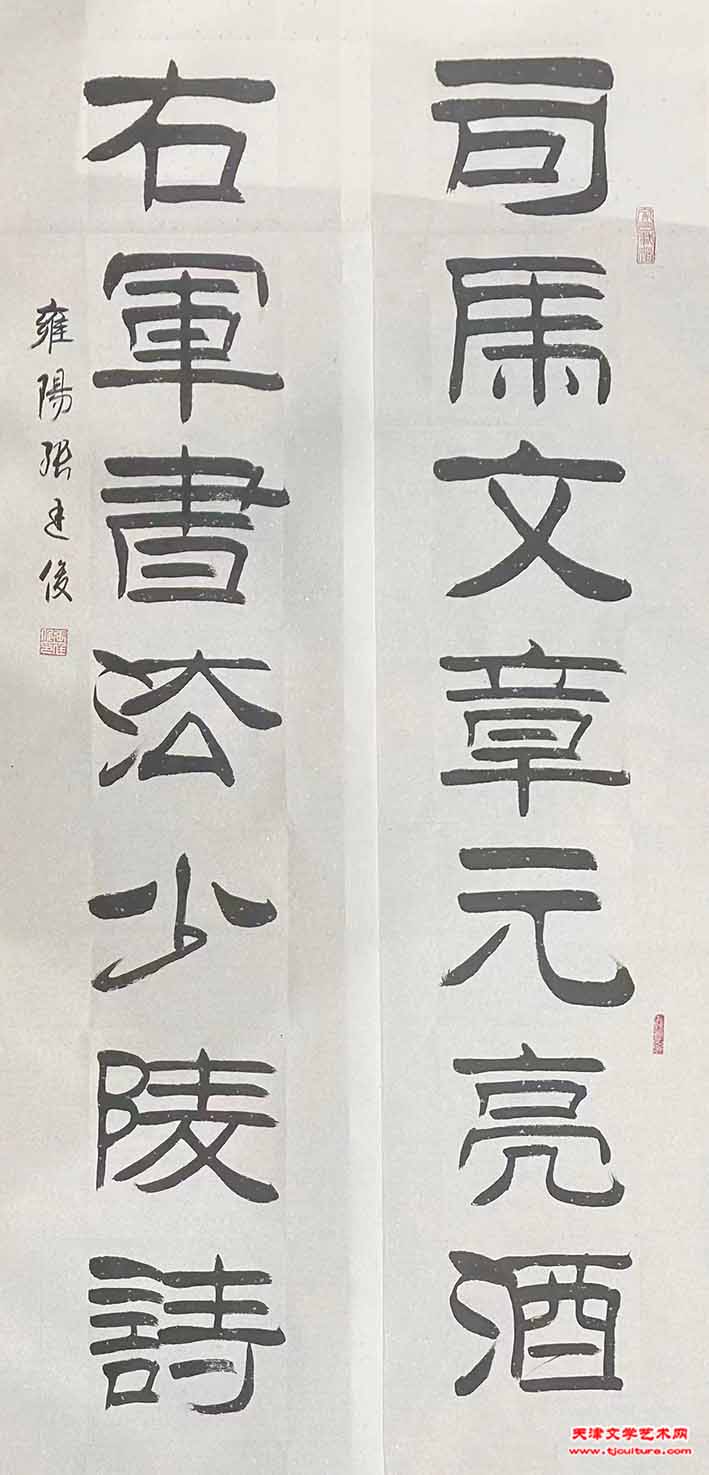 司馬文章元亮酒
右軍書法少陵詩
雍陽張建俊
天津文学艺术网
www.tjculture.com